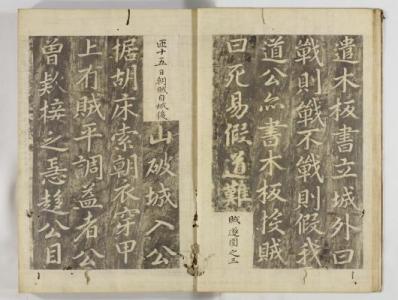 遣木板書立城外曰
戰則戰不戰則假我
道公亦書木板投賊
曰死易假道難
賊遂圍之三
匝十五日朝賊自城後
山破城入公
据胡床索朝衣穿甲
上有賊平調益者公
曾款接之急趍公目